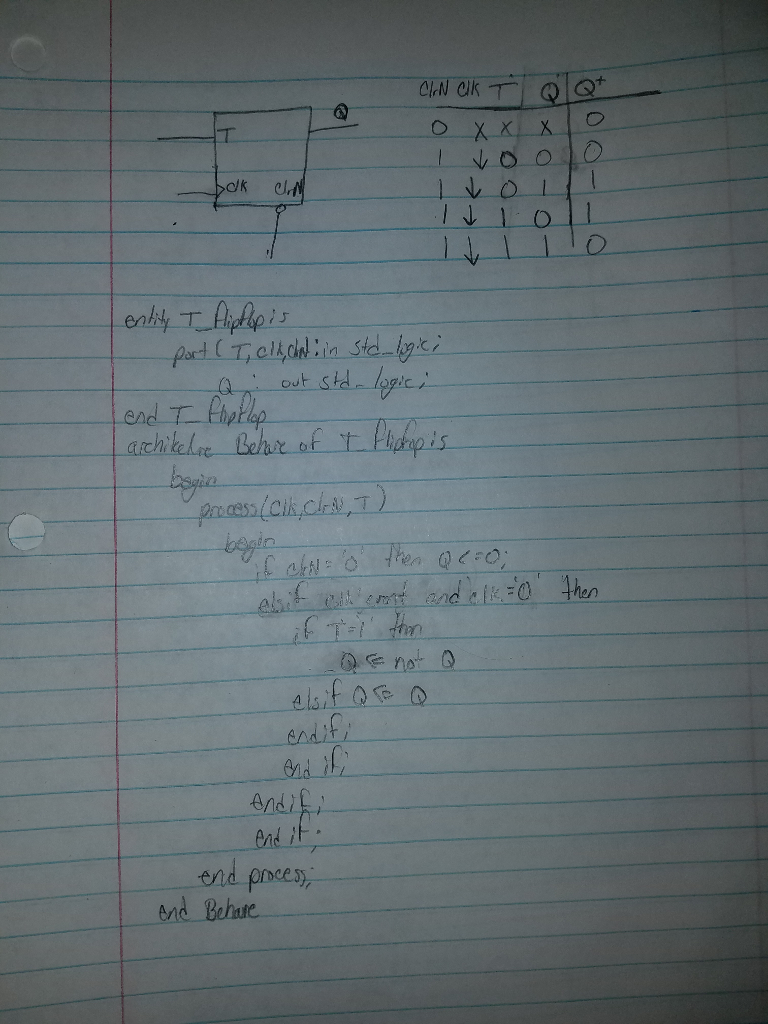 ClrN Clk T Q Q+
0 X X X 0
1 ↓ 0 0 0
1 ↓ 0 1 1
1 ↓ 1 0 1
1 ↓ 1 1 0
Q
T
clk ClrN
entity T_flipflop is
port ( T, clk, clrN : in std_logic;
Q : out std_logic;
end T_flipflop
Behave of T_flipflop is
begin
process (Clk, ClrN, T)
begin
if clrN = '0' then Q <= 0;
elsif clk event and clk = '0' then
if T = '1' then
Q <= not Q
elsif Q <= Q
endif;
end if;
endif;
end if;
end process;
end Behave